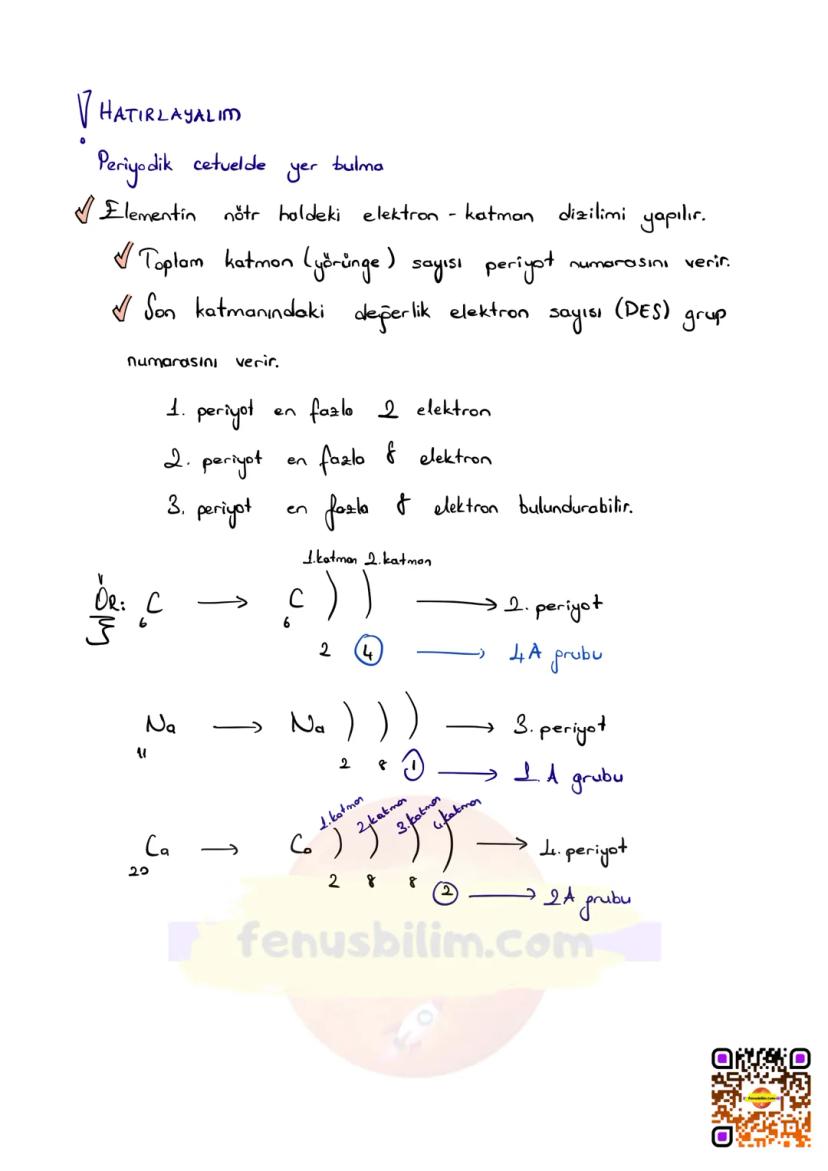 ! HATIRLAYALIM
Periyodik cetvelde yer bulma
✓ Elementin nötr haldeki elektron - katman dizilimi yapılır.
✓ Toplam katman (yörünge) sayısı periyot numarasını verir.
✓ Son katmanındaki değerlik elektron sayısı (DES) grup
numarasını verir.
1. periyot en fazla 2 elektron
2. periyot en fazla 8 elektron
3. periyot en fazla 8 elektron bulundurabilir.
1.katman 2.katman
Ör: ₆C → ₆C ) ) → 2. periyot
2 4 → 4A grubu
Na → Na ) ) ) → 3. periyot
11 2 8 1 → 1A grubu
1.katman 2.katman 3.katman 4.katman
Ca → Ca ) ) ) ) → 4. periyot
20 2 8 8 2 → 2A grubu
fenusbilim.com
fenusbilim.com